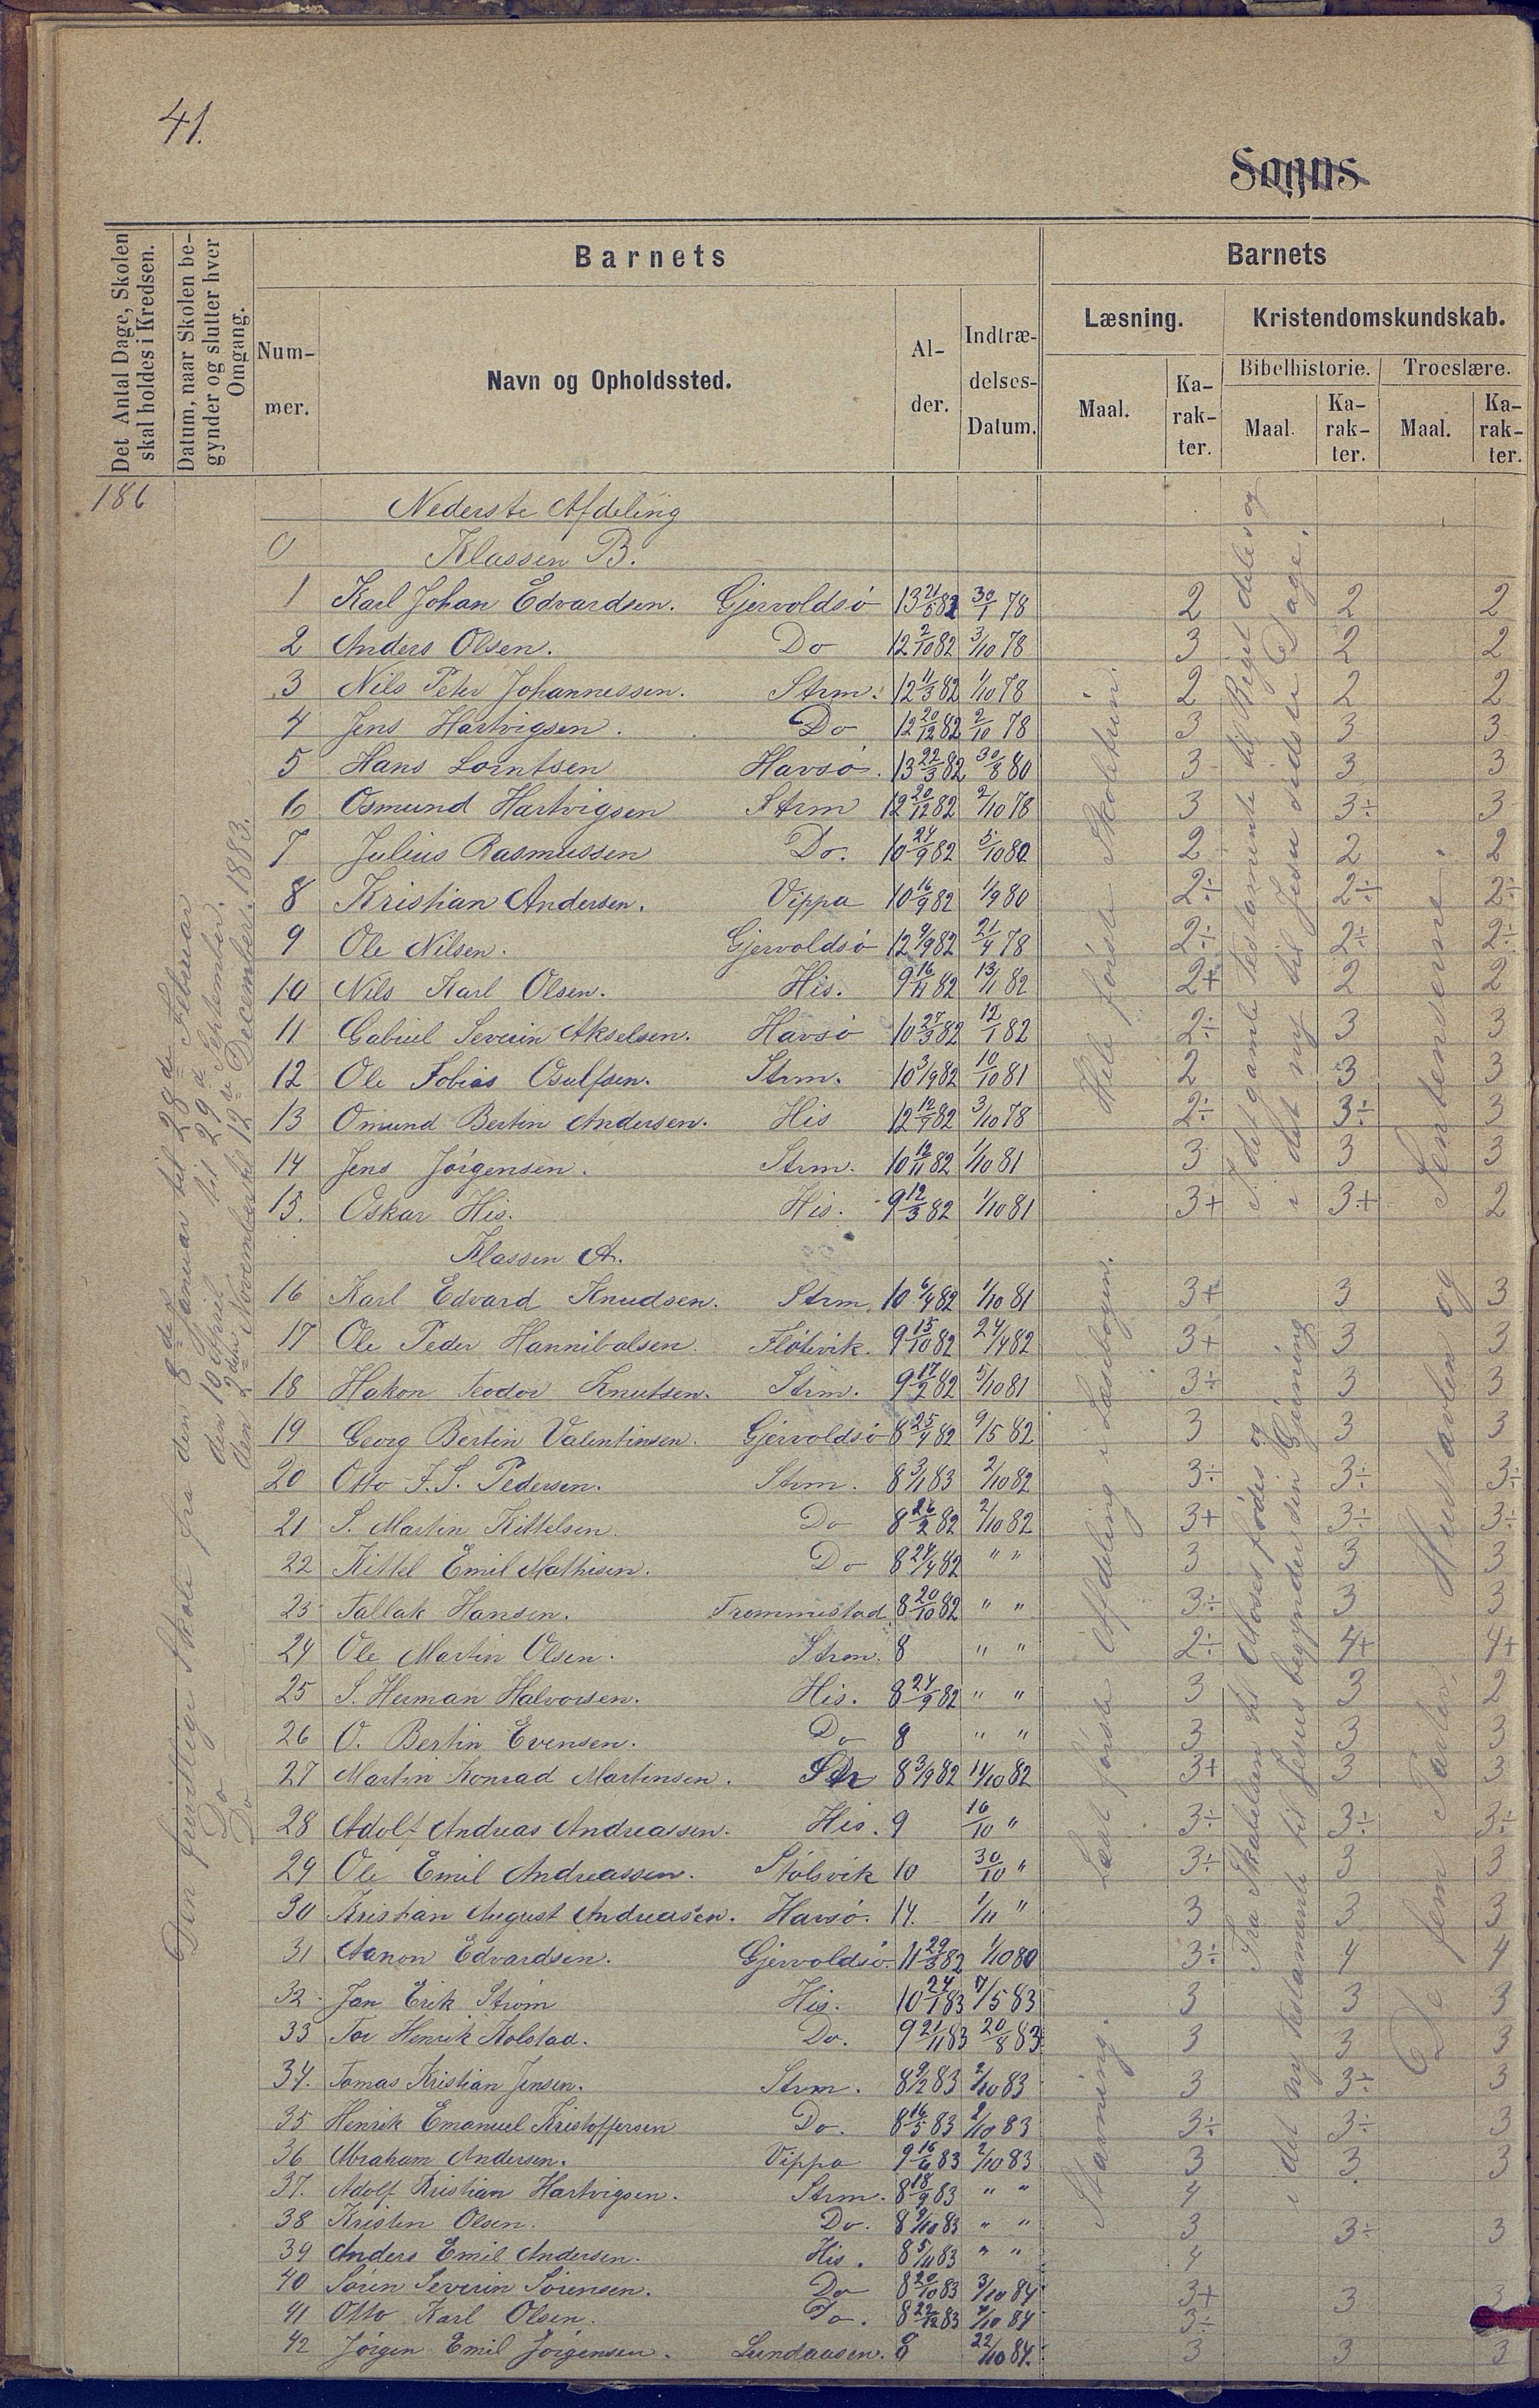 41.
Sogns
Det Antal Dage, Skolen skal holdes i Kredsen.
Datum, naar Skolen begynder og slutter hver Omgang.
Barnets
Barnets
Num-mer.
Navn og Opholdssted.
Al-der.
Indtræ-delses-Datum.
Læsning.
Kristendomskundskab.
Bibelhistorie.
Troeslære.
Maal.
Ka-rak-ter.
Maal.
Ka-rak-ter.
Maal.
Ka-rak-ter.
186
Den frivillige Skole fra den 8de Januar til 28de Februar
Do den 10 April til 29de September.
Do den 2den November til 12te December. 1883.
Nederste Afdeling
0 Klassen B.
1 Karl Johan Edvardsen. Gjervoldsö 13 21/5 82 30/1 78 2 2 2
2 Anders Olsen. Do 12 2/10 82 3/10 78 3 2 2
3 Nils Peter Johannessen. Strm. 12 11/3 82 1/10 78 2 2 2
4 Jens Hartvigsen. Do 12 20/12 82 2/10 78 3 3 3
5 Hans Lorntsen Havsö. 13 22/3 82 30/8 80 3 3 3
6 Osmund Hartvigsen Strm 12 20/12 82 2/10 78 3 3÷ 3
7 Julius Rasmussen Do. 10 24/9 82 5/10 80 2 2 2
8 Kristian Andersen. Vippa 10 16/9 82 1/9 80 2÷ 2÷ 2÷
9 Ole Nilsen. Gjervoldsö 12 9/9 82 21/4 78 2÷ 2÷ 2÷
10 Nils Karl Olsen. His. 9 16/11 82 13/11 82 2+ 2 2
11 Gabriel Severin Akselsen. Havsö 10 27/3 82 12/1 82 2÷ 3 3
12 Ole Tobias Osulfsen. Strm. 10 3/9 82 10/10 81 2 3 3
13 Omund Bertin Andersen. His 12 12/9 82 3/10 78 2÷ 3÷ 3
14 Jens Jörgensen. Strm. 10 12/11 82 1/10 81 3 3 3
15. Oskar His. His. 9 12/3 82 1/10 81 3+ 3+ 2
Klassen A.
16 Karl Edvard Knudsen. Strm. 10 6/4 82 1/10 81 3+ 3 3
17 Ole Peder Hannibalsen. Flötevik. 9 15/10 82 24/4 82 3+ 3 3
18 Hakon Teodor Knutsen. Strm. 9 17/2 82 5/10 81 3÷ 3 3
19 Georg Bertin Valentinsen. Gjervoldsö 8 25/4 82 9/5 82 3 3 3
20 Otto F. S. Pedersen. Strm. 8 3/11 83 2/10 82 3÷ 3÷ 3÷
21 S. Martin Kittelsen. Do 8 26/2 82 2/10 82 3+ 3÷ 3÷
22 Kittel Emil Mathisen. Do 8 24/4 82 " " 3 3 3
23 Tallak Hansen. Trommestad 8 20/10 82 " " 3÷ 3 3
24 Ole Martin Olsen. Strm. 8 " " 2÷ 4+ 4+
25 S. Herman Halvorsen. His. 8 24/9 82 " " 3 3 2
26 O. Bertin Evensen. Do 8 " " 3 3 3
27 Martin Konrad Martinsen. Str 8 3/9 82 11/10 82 3+ 3 3
28 Adolf Andreas Andreassen. His. 9 16/10 " 3÷ 3÷ 3÷
29 Ole Emil Andreassen. Stölsvik 10 30/10 " 3÷ 3 3
30 Kristian August Andreasen. Havsö. 14. 1/11 " 3 3 3
31 Aanon Edvardsen. Gjervoldsö. 11 29/3 82 1/10 80 3÷ 4 4
32. Jan Erik Ström His. 10 24/1 83 7/5 83 3 3 3
33 Tor Henrik Kolstad. Do. 9 21/11 83 20/8 83 3 3 3
34. Tomas Kristian Jensen. Strm. 8 9/2 83 2/10 83 3 3÷ 3
35 Henrik Emanuel Kristoffersen Do. 8 16/5 83 2/10 83 3÷ 3÷ 3
36 Abraham Andersen. Vippa 9 16/6 83 2/10 83 3 3. 3
37. Adolf Kristian Hartvigsen. Strm. 8 18/9 83 " " 4
38 Kristen Olsen. Do. 8 9/10 83 " " 3 3÷ 3
39 Anders Emil Andersen. His. 8 5/11 83 " " 4
40 Sören Severin Sörensen. Do 8 20/10 83 3/10 84 3+ 3 3
41 Otto Karl Olsen. Do. 8 22/12 83 7/10 84 3÷
42 Jörgen Emil Jörgensen. Lundaasen. 8 22/10 84. 3 3 3
Hele förste Skoletrin.
Læst förste Afdeling i Læsebogen.
Stavning.
I det gamle Testamente til Riget deles og
i det ny til Jesu sidste Dage.
Fra Skabelsen til Moses födes og
i det ny testamente til Jesus begynder sin Gjerning
De fem Parter, Hustavlen og Sentenserne.